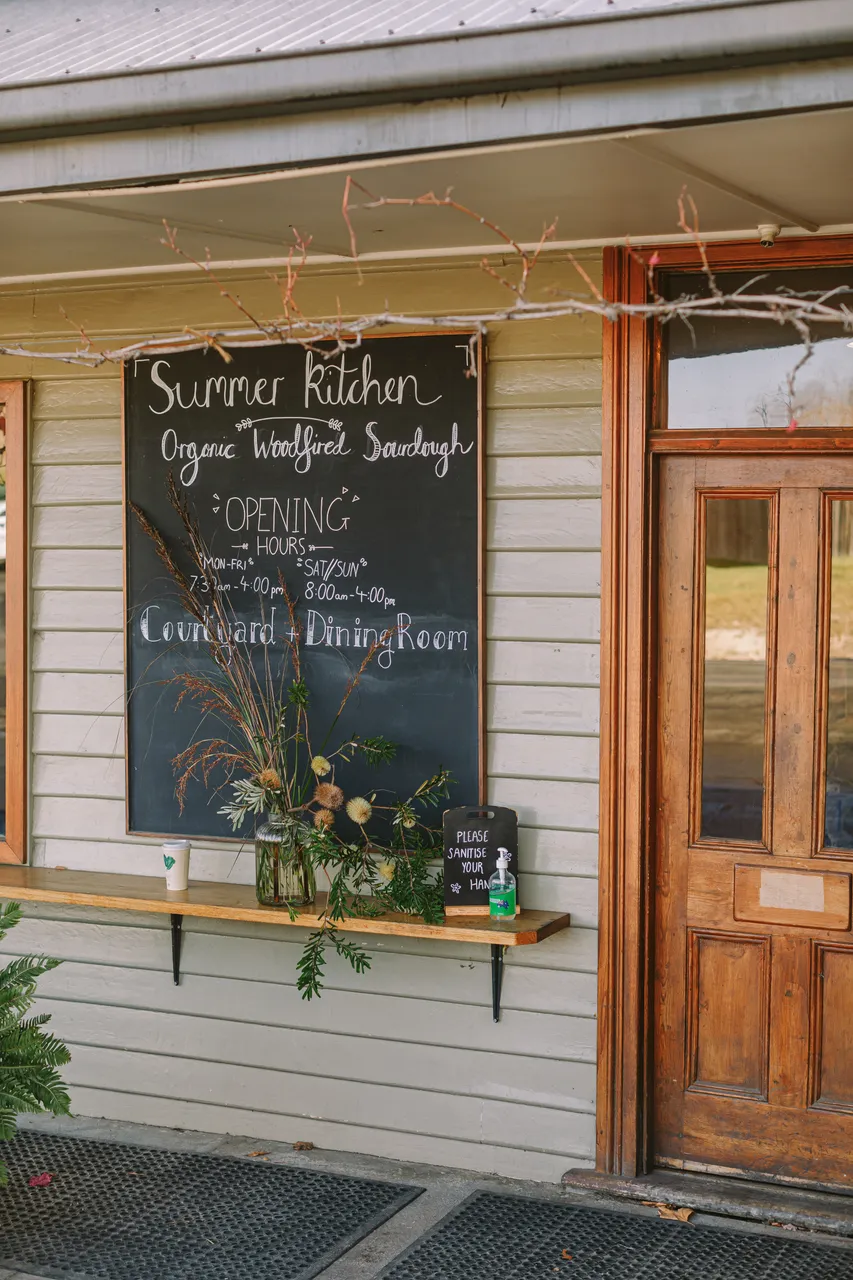 Summer Kitchen
Organic Woodfired Sourdough
OPENING
HOURS
MON-FRI SAT//SUN
7:30am-4:00pm 8:00am-4:00pm
Courtyard + Dining Room
PLEASE
SANITISE
YOUR